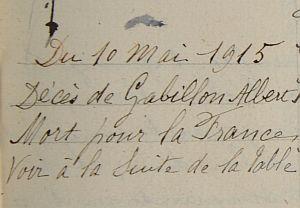 Du 10 Mai 1915
Décès de Gabillon Albert
Mort pour la France,
Voir à la Suite de la Table